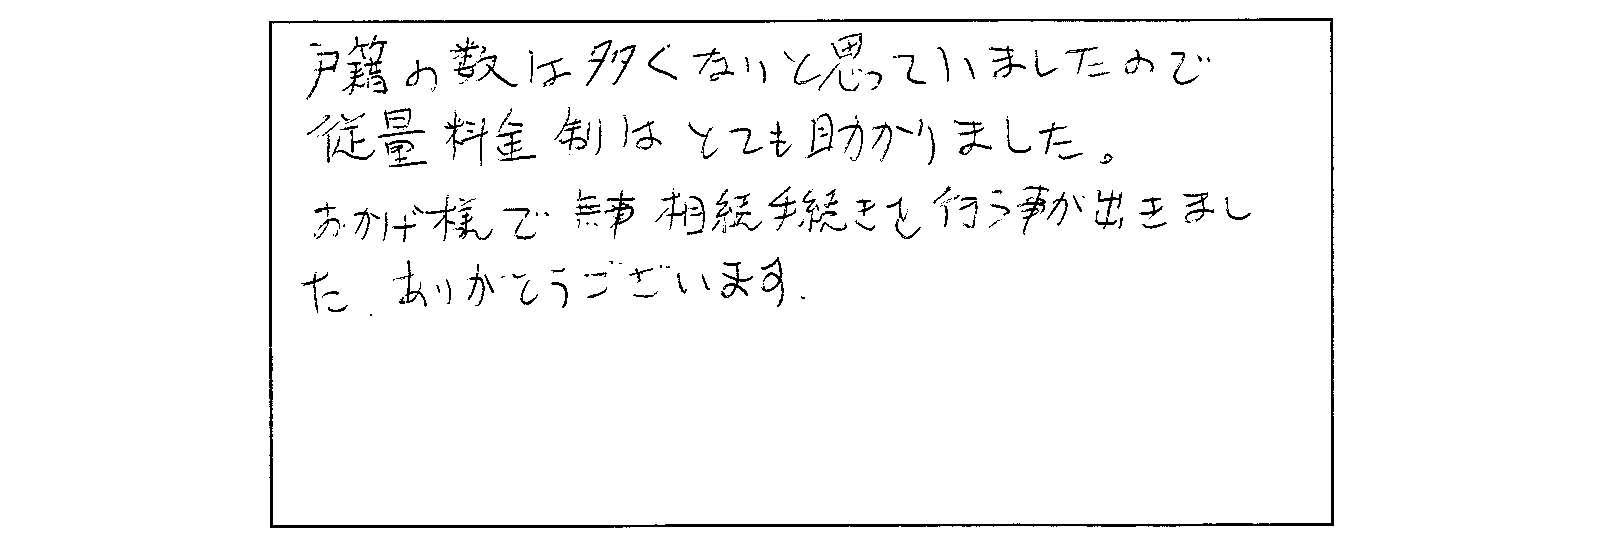 戸籍の数は多くないと思っていましたので
従量料金制はとても助かりました。
おかげ様で無事相続手続きを行う事が出きまし
た。ありがとうございます。